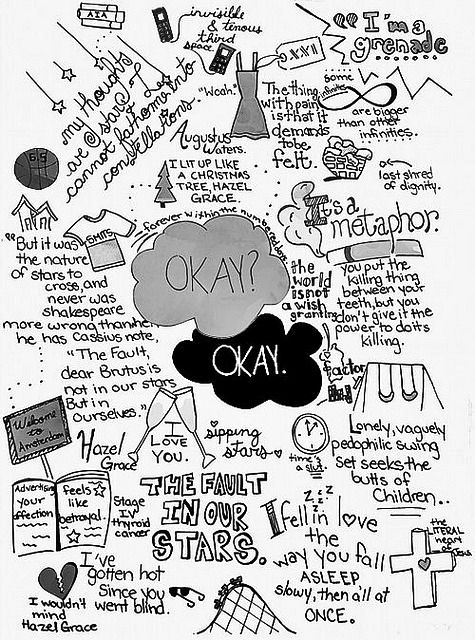 AIA
invisible
& tenous
third
space
"I'm a
grenade
my thoughts
are stars I
cannot fathom into
constellations.
"Woah."
Augustus
Waters.
The thing
with pain
is that it
demands
to be
felt.
some
infinities
are bigger
than other
infinities.
last shred
of dignity.
I LIT UP LIKE
A CHRISTMAS
TREE, HAZEL
GRACE.
forever within the numbered days
It's a
metaphor.
you put the
killing thing
between your
teeth, but you
don't give it the
power to do its
killing.
"But it was
the nature
of stars to
cross, and
never was
shakespeare
more wrong than when
he has Cassius note,
"The Fault,
dear Brutus is
not in our stars
But in
ourselves."
OKAY?
OKAY.
the
world
is not
a wish
granting
factory
Welcome
to
Amsterdam
Hazel
Grace
I
LOVE
YOU.
sipping
stars
time's
a slut.
Lonely, vaguely
pedophilic swing
set seeks the
butts of
Children..
Advertising
your
affection
feels
like
betrayal.
Stage
IV
thyroid
cancer
THE FAULT
IN OUR
STARS.
z z z
I fell in love
the
way you fall
ASLEEP
slowy, then all at
ONCE.
the
LITERAL
heart
of
I've
gotten hot
Since you
went blind.
I wouldn't
mind
Hazel Grace